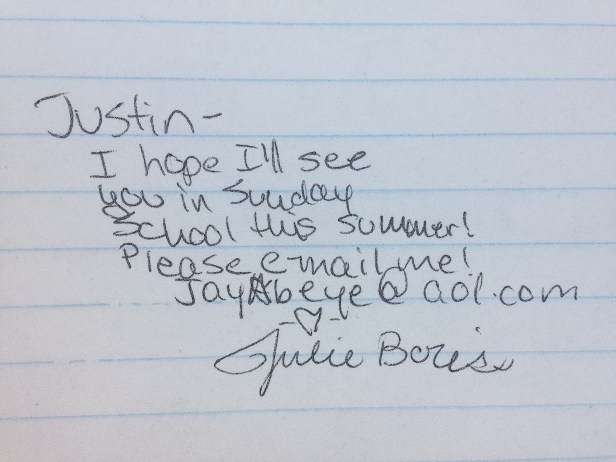 Justin-
I hope I'll see
you in Sunday
School this summer!
Please e-mail me!
JayAbeye@aol.com
-♡-
Julie Boris